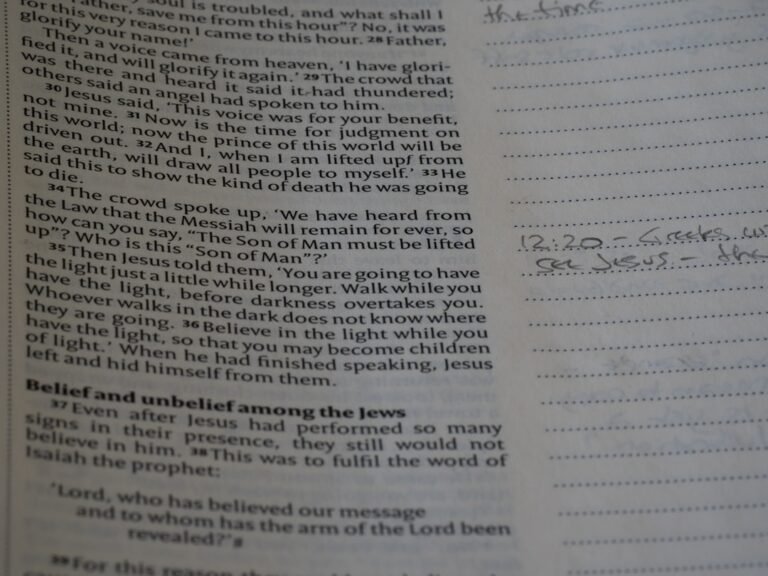 soul is troubled, and what shall I
'Father, save me from this hour"? No, it was
for this very reason I came to this hour. 28 Father,
glorify your name!'
Then a voice came from heaven, 'I have glori-
fied it, and will glorify it again.' 29 The crowd that
was there and heard it said it had thundered;
others said an angel had spoken to him.
30 Jesus said, 'This voice was for your benefit,
not mine. 31 Now is the time for judgment on
this world; now the prince of this world will be
driven out. 32 And I, when I am lifted upf from
the earth, will draw all people to myself.' 33 He
said this to show the kind of death he was going
to die.
34 The crowd spoke up, 'We have heard from
the Law that the Messiah will remain for ever, so
how can you say, "The Son of Man must be lifted
up"? Who is this "Son of Man"?'
35 Then Jesus told them, 'You are going to have
the light just a little while longer. Walk while you
have the light, before darkness overtakes you.
Whoever walks in the dark does not know where
they are going. 36 Believe in the light while you
have the light, so that you may become children
of light.' When he had finished speaking, Jesus
left and hid himself from them.
Belief and unbelief among the Jews
37 Even after Jesus had performed so many
signs in their presence, they still would not
believe in him. 38 This was to fulfil the word of
Isaiah the prophet:
'Lord, who has believed our message
and to whom has the arm of the Lord been
revealed?'g
39 For this reason
the time
12:20 - Greeks
see Jesus - the